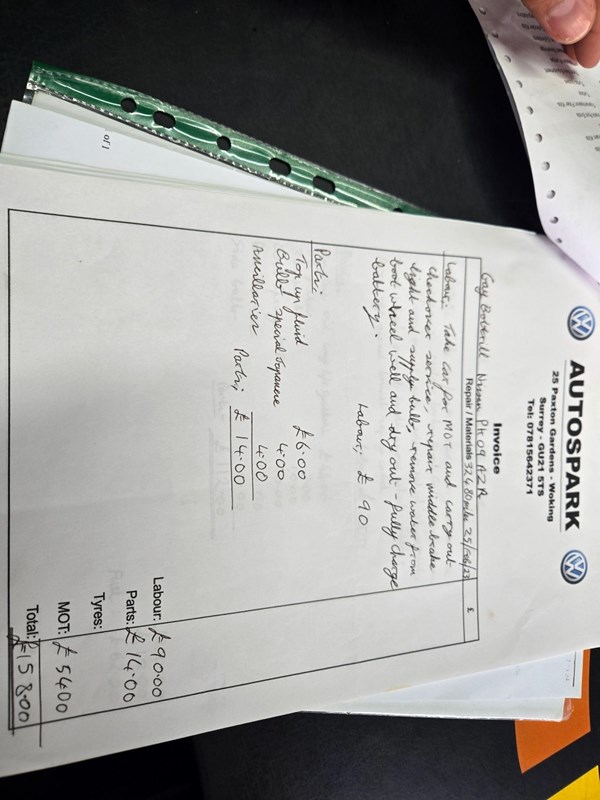 AUTOSPARK
25 Paxton Gardens - Woking
Surrey - GU21 5TS
Tel: 07815642371
Invoice
Nissan PK09 AZR
Repair / Materials 32480 miles 25/ /23 £
Labour: Take car for MOT and carry out
checkover service, repair middle brake
light and supply bulb, remove water from
boot wheel well and dry out - fully charge
battery.
Labour: £ 90
Parts:
Top up fluid £6.00
Bulb special Japanese 4.00
Ancillaries 4.00
Parts: £ 14.00
Labour: £90.00
Parts: £14.00
Tyres:
MOT: £54.00
Total: £158.00